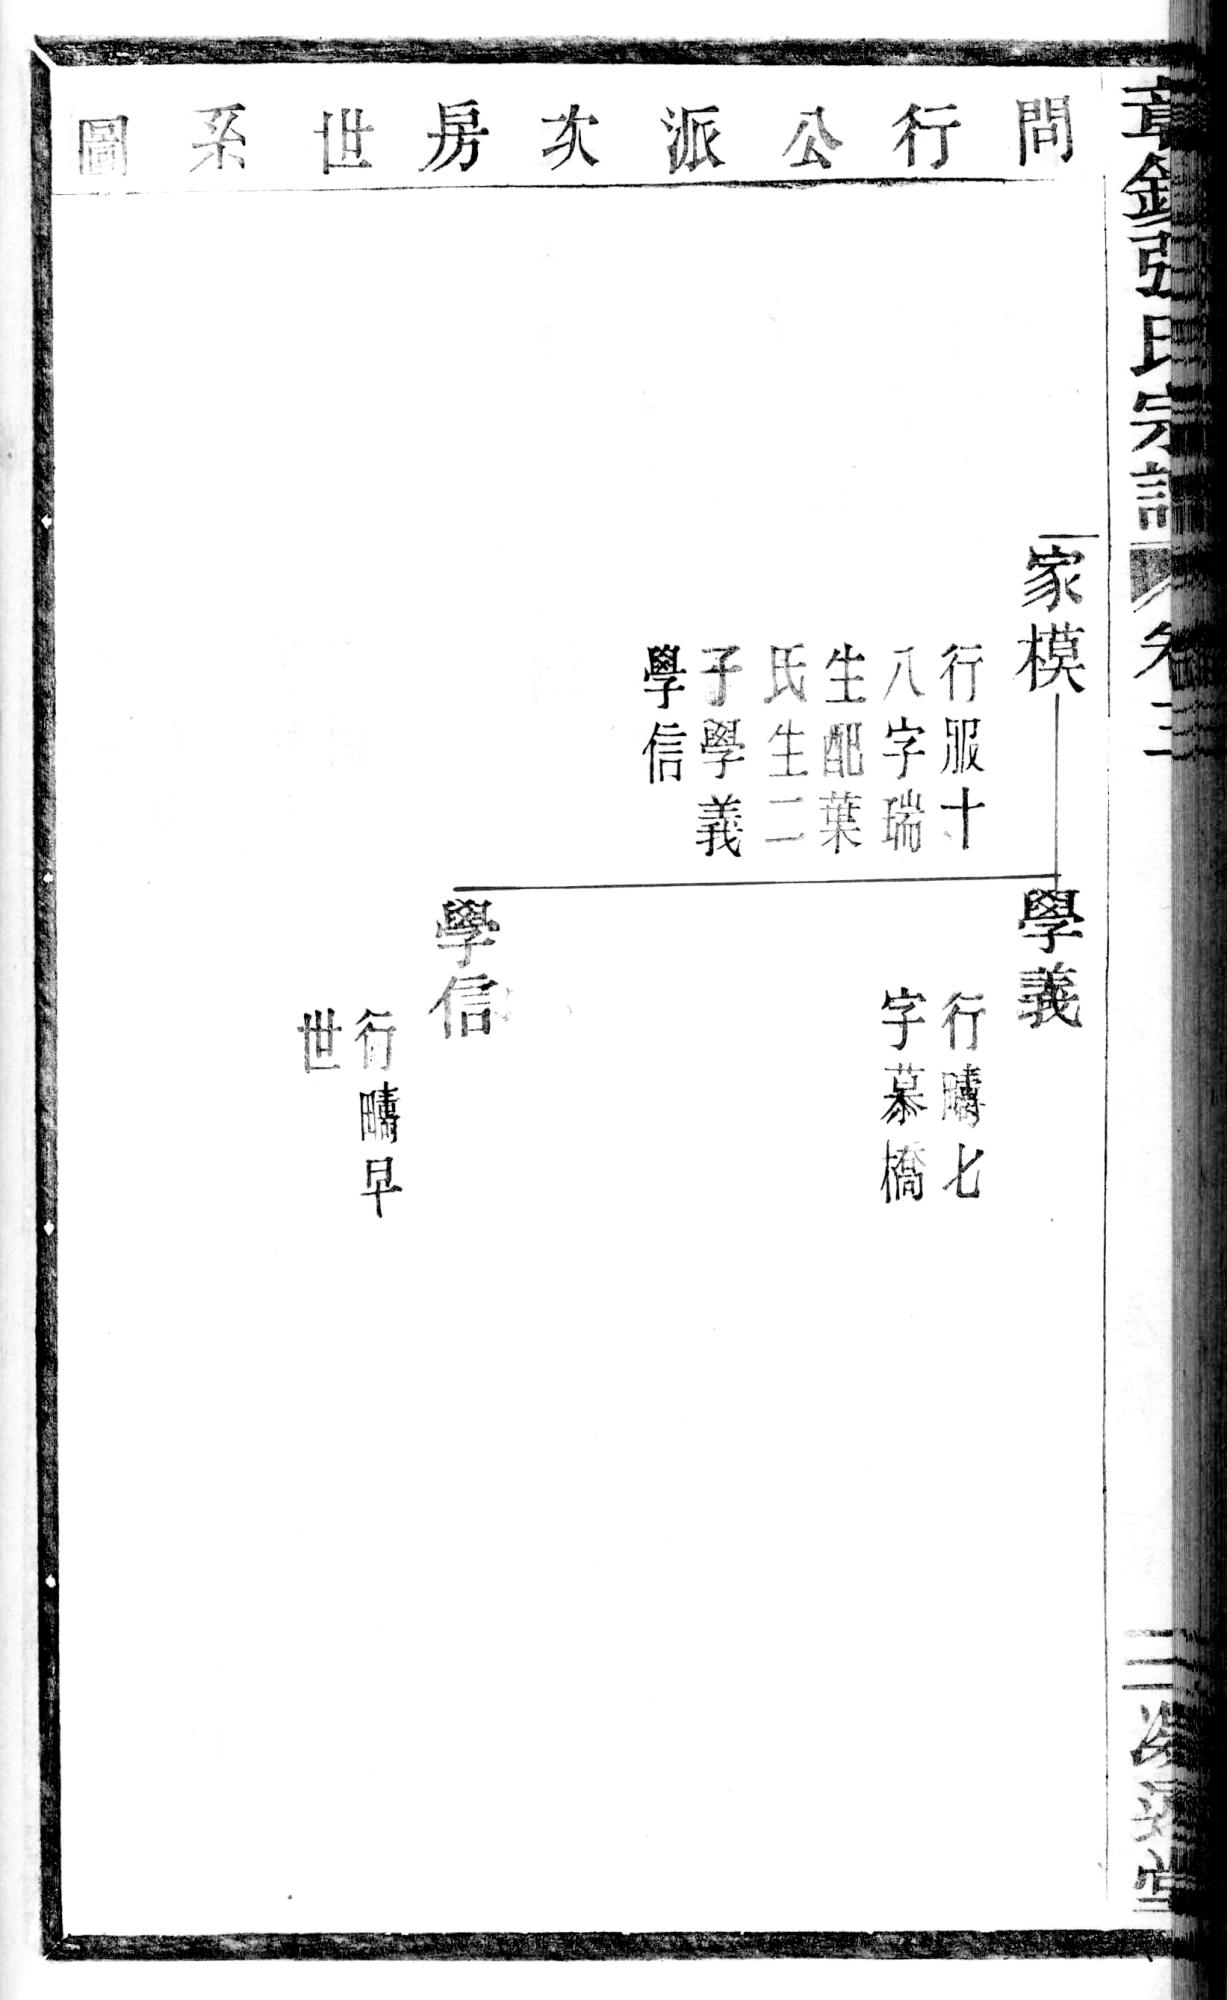 問行公派次房世系圖
張氏宗譜
卷三
家模
行服十
八字瑞
生配葉
氏生二
子學義
學信
學義
行疇七
字慕橋
學信
行疇早
世
三
堂